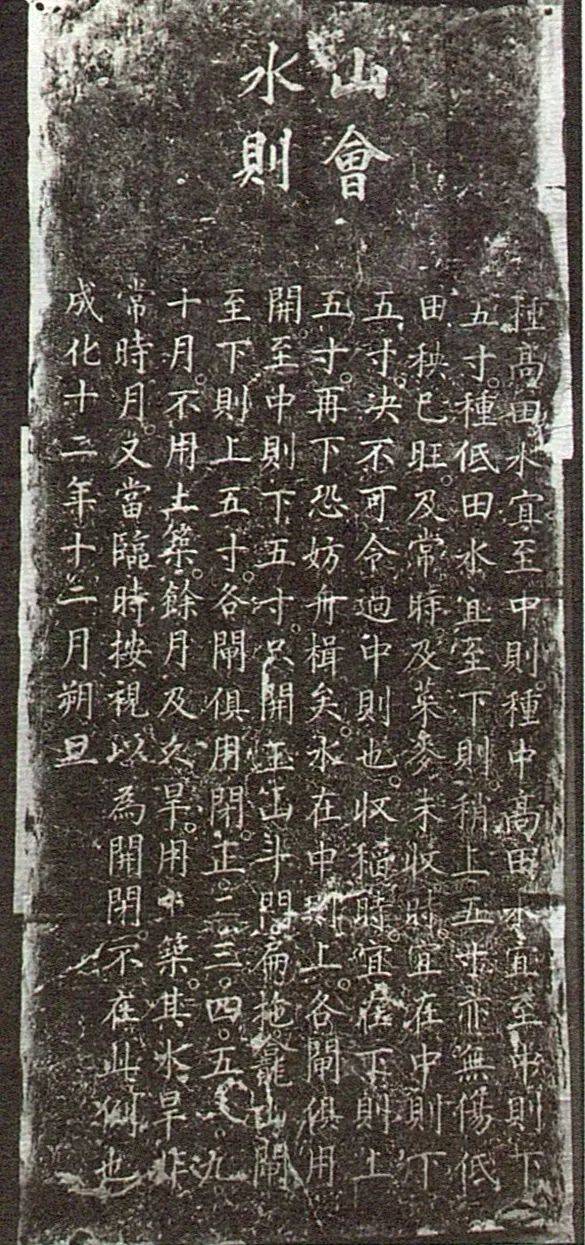 山會
水則
種高田水宜至中則種中高田水宜至中則下
五寸種低田水宜至下則稍上五寸亦無傷低
田秧已旺及常時及菜麥未收時宜在中則下
五寸決不可令過中則也收稻時宜在下則上
五寸再下恐妨舟楫矣水在中則上各閘俱用
開至中則下五寸只開玉山斗門扁拖龕山閘
至下則上五寸各閘俱用閉正二三四五八九
十月不用土築餘月及久旱用土築其水旱非
常時月又當臨時按視以為開閉不在此例也
成化十二年十二月朔旦